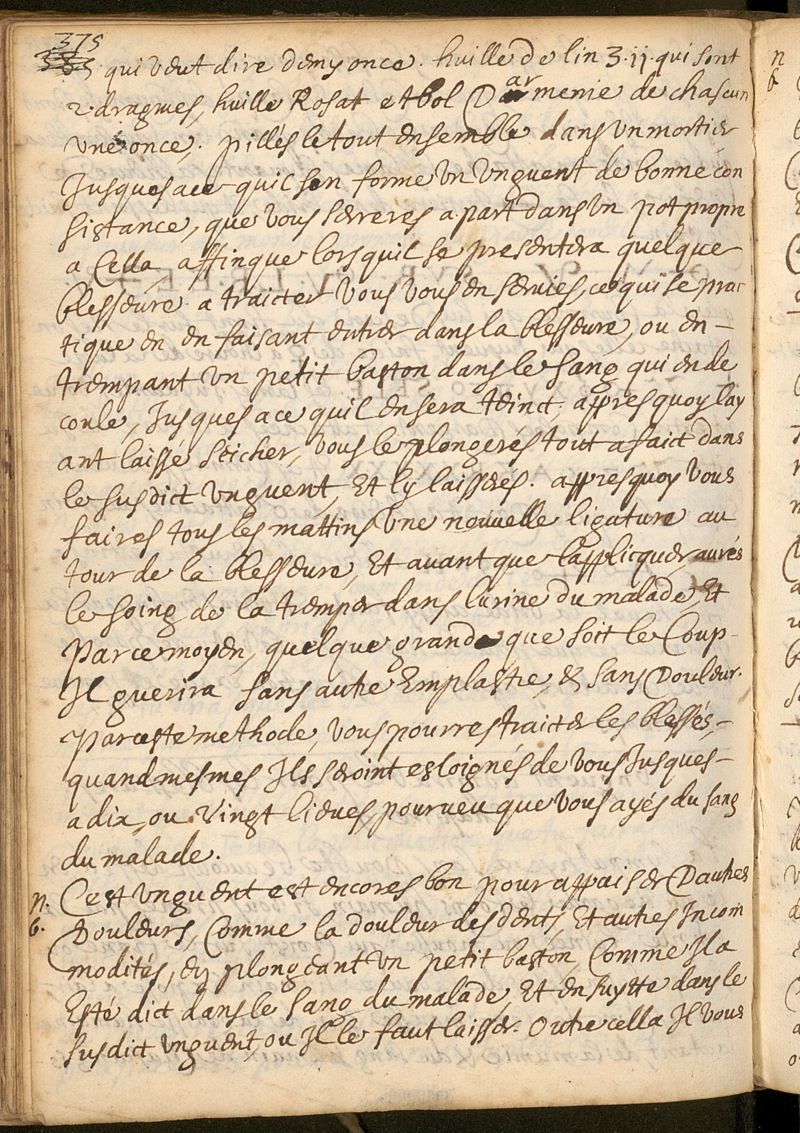 375
383
qui veut dire demy once. huille de lin 3.ij. qui sont
2 dragmes, huille Rosat et bol D'armenie de chascun
une once. pillés le tout ensemble dans un mortier
Jusques a ce quil s'en forme un unguent de bonne con
sistance, que vous serreres a part dans un pot propre
a Cella, affinque lors quil se presentera quelque
blesseure a traicter vous vous en servies, ce qui se prac
tique en en faisant entrer dans la blesseure, ou en -
trempant un petit baston dans le sang qui en de
coule, Jusques a ce quil en sera teinct. appres quoy lay
ant laissé seicher, vous le plongerés tout a faict dans
le susdict unguent, Et l'y laisseres. appres quoy vous
faires tous les mattins une nouvelle ligature au
tour de la blesseure, Et avant que l'applicquer aurés
le soing de la tremper dans l'urine du malade, Et
Par ce moyen, quelque grand que soit le Coup -
Il guerira sans autre Emplastre, & sans Douleur.
Par ceste methode, vous pourres traicter les blessés, -
quand mesmes Ils seroint esloignés de vous Jusques -
a dix, ou Vingt lieues, pourveu que vous ayés du sang
du malade.
n. Cest unguent est encores bon pour appaiser D'autres
6. Douleurs, Comme la douleur des dents, Et autres Incom
modités, en plongeant un petit baston, Comme Il a
Esté dict dans le sang du malade, Et ensuytte dans le
susdict unguent, ou Il le faut laisser. Outre cella Il vous